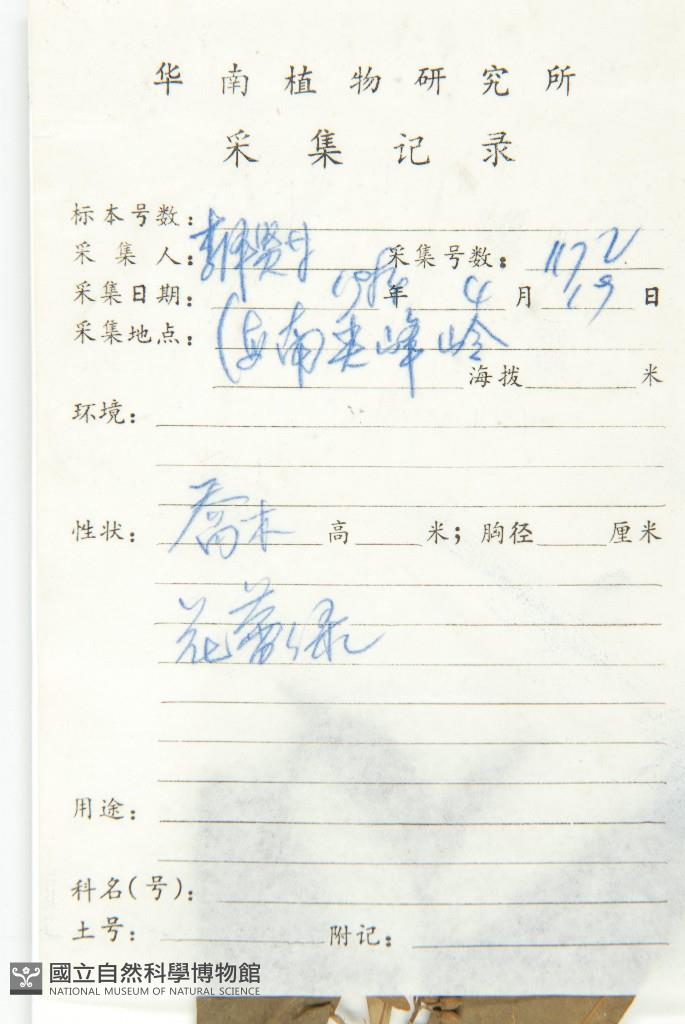 华南植物研究所
采集记录
标本号数:
采集人: 采集号数: 1172
采集日期: 年 4 月 19 日
采集地点: 海南尖峰岭
海拨 米
环境:
性状: 喬木 高 米; 胸径 厘米
花蕾绿
用途:
科名(号):
土号: 附记:
國立自然科學博物館
NATIONAL MUSEUM OF NATURAL SCIENCE